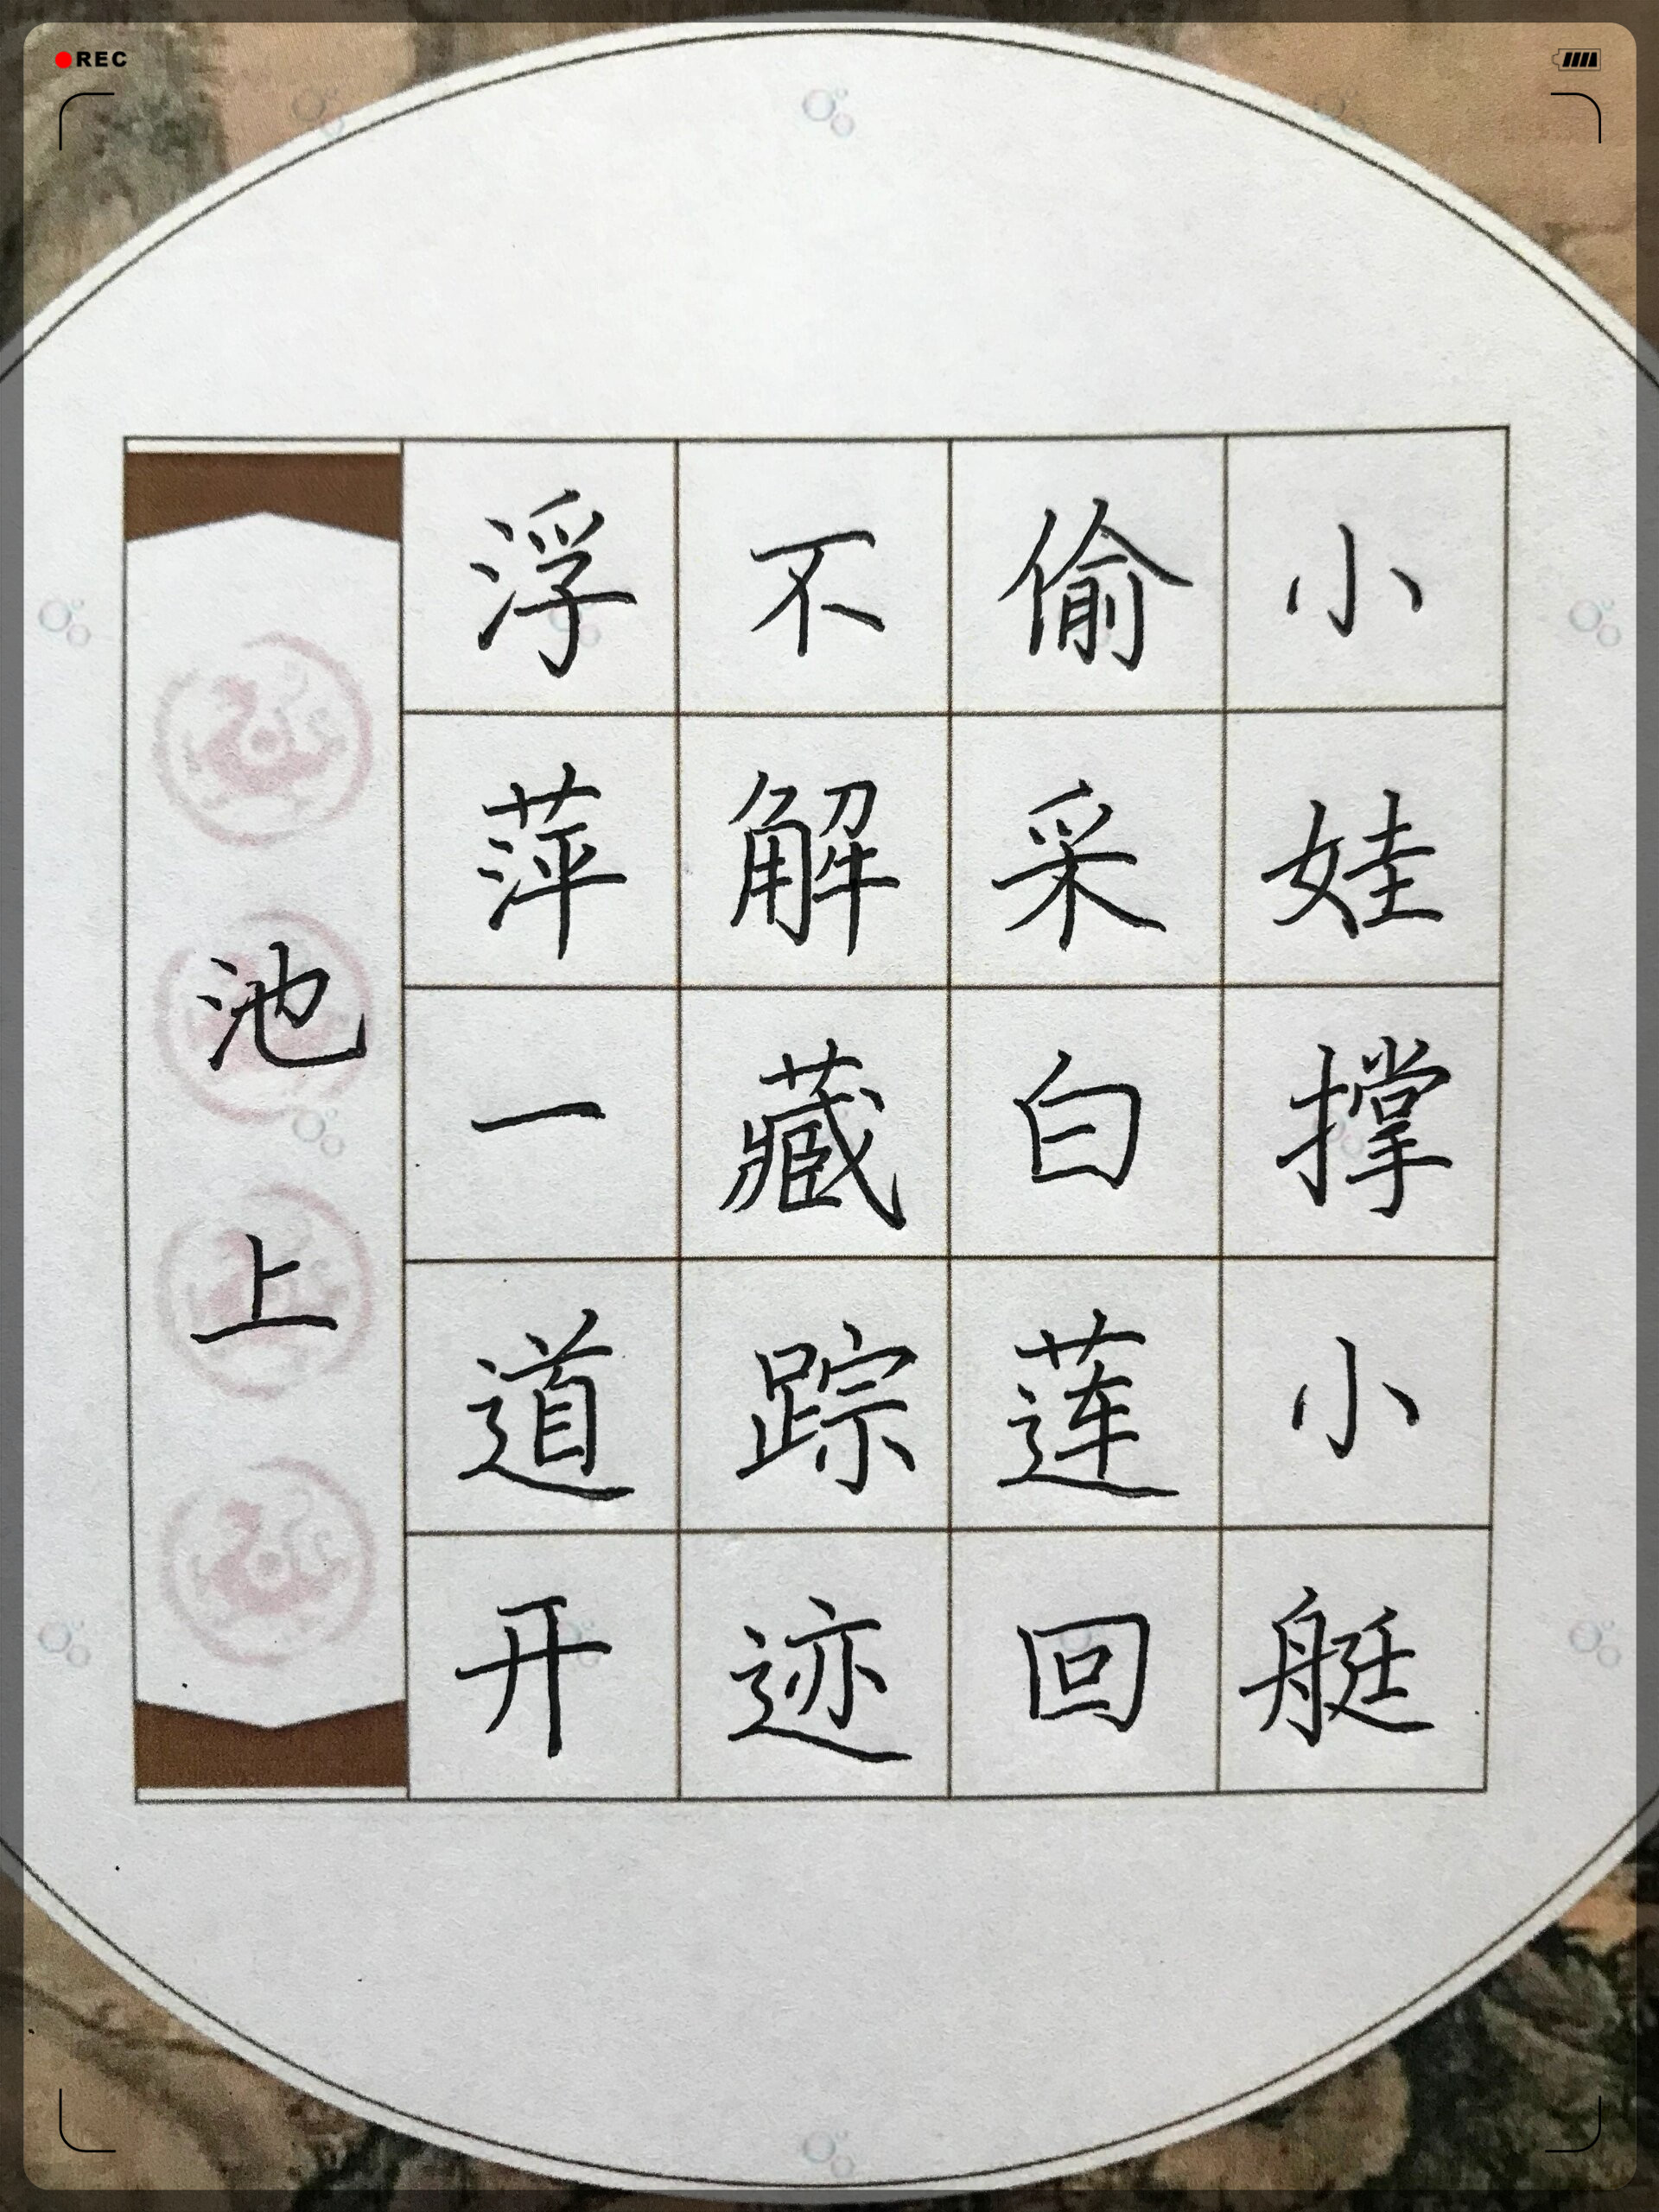 REC
小娃撑小艇
偷采白莲回
不解藏踪迹
浮萍一道开
池上